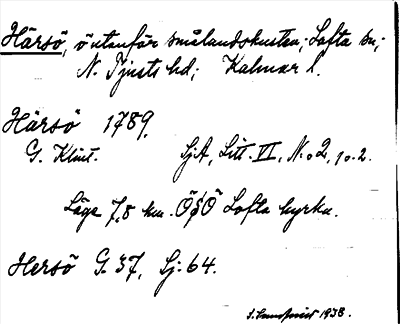 Härsö, ö utanför smålandskusten; Lofta sn;
N. Tjusts hd; Kalmar l.
Härsö 1789.
G. Klint. SjA, Litt. VI, N:o 2, p. 2.
Läge 7,8 km. ÖSÖ Lofta kyrka.
Hersö G. 37, Sj: 64.
1938.